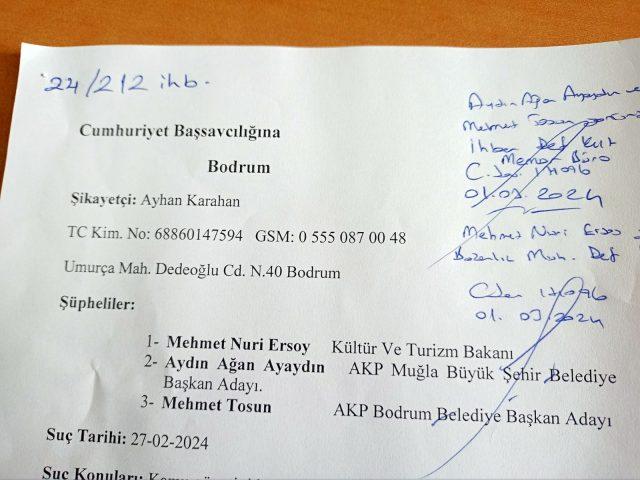 24/212 ihb.
Cumhuriyet Başsavcılığına
Bodrum
Şikayetçi: Ayhan Karahan
TC Kim. No: 68860147594 GSM: 0 555 087 00 48
Umurça Mah. Dedeoğlu Cd. N.40 Bodrum
Şüpheliler:
1- Mehmet Nuri Ersoy Kültür Ve Turizm Bakanı
2- Aydın Ağan Ayaydın AKP Muğla Büyük Şehir Belediye
Başkan Adayı.
3- Mehmet Tosun AKP Bodrum Belediye Başkan Adayı
Suç Tarihi: 27-02-2024
Suç Konuları:
Aydın Ağan Ayaydın ve
Mehmet
İhbar Def Kut
Memur Büro
01.03.2024
Mehmet Nuri Ersoy
Muh. Def
01.03.2024